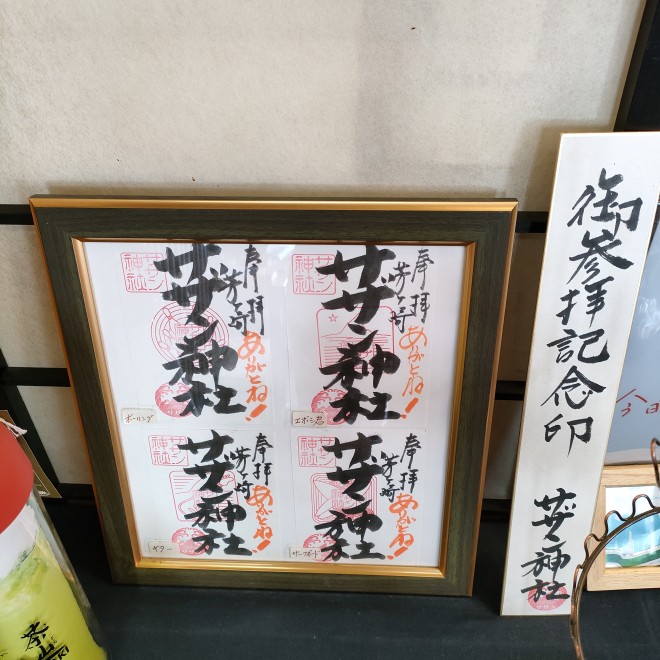 奉拝
茅ヶ崎
サザン神社
ありがとね!
サザン
神社
ボーリング
奉拝
茅ヶ崎
サザン神社
ありがとね!
サザン
神社
エボシ君
奉拝
茅ヶ崎
サザン神社
ありがとね!
サザン
神社
ギター
奉拝
茅ヶ崎
サザン神社
ありがとね!
サザン
神社
サーフボード
御参拝記念印 サザン神社
今日